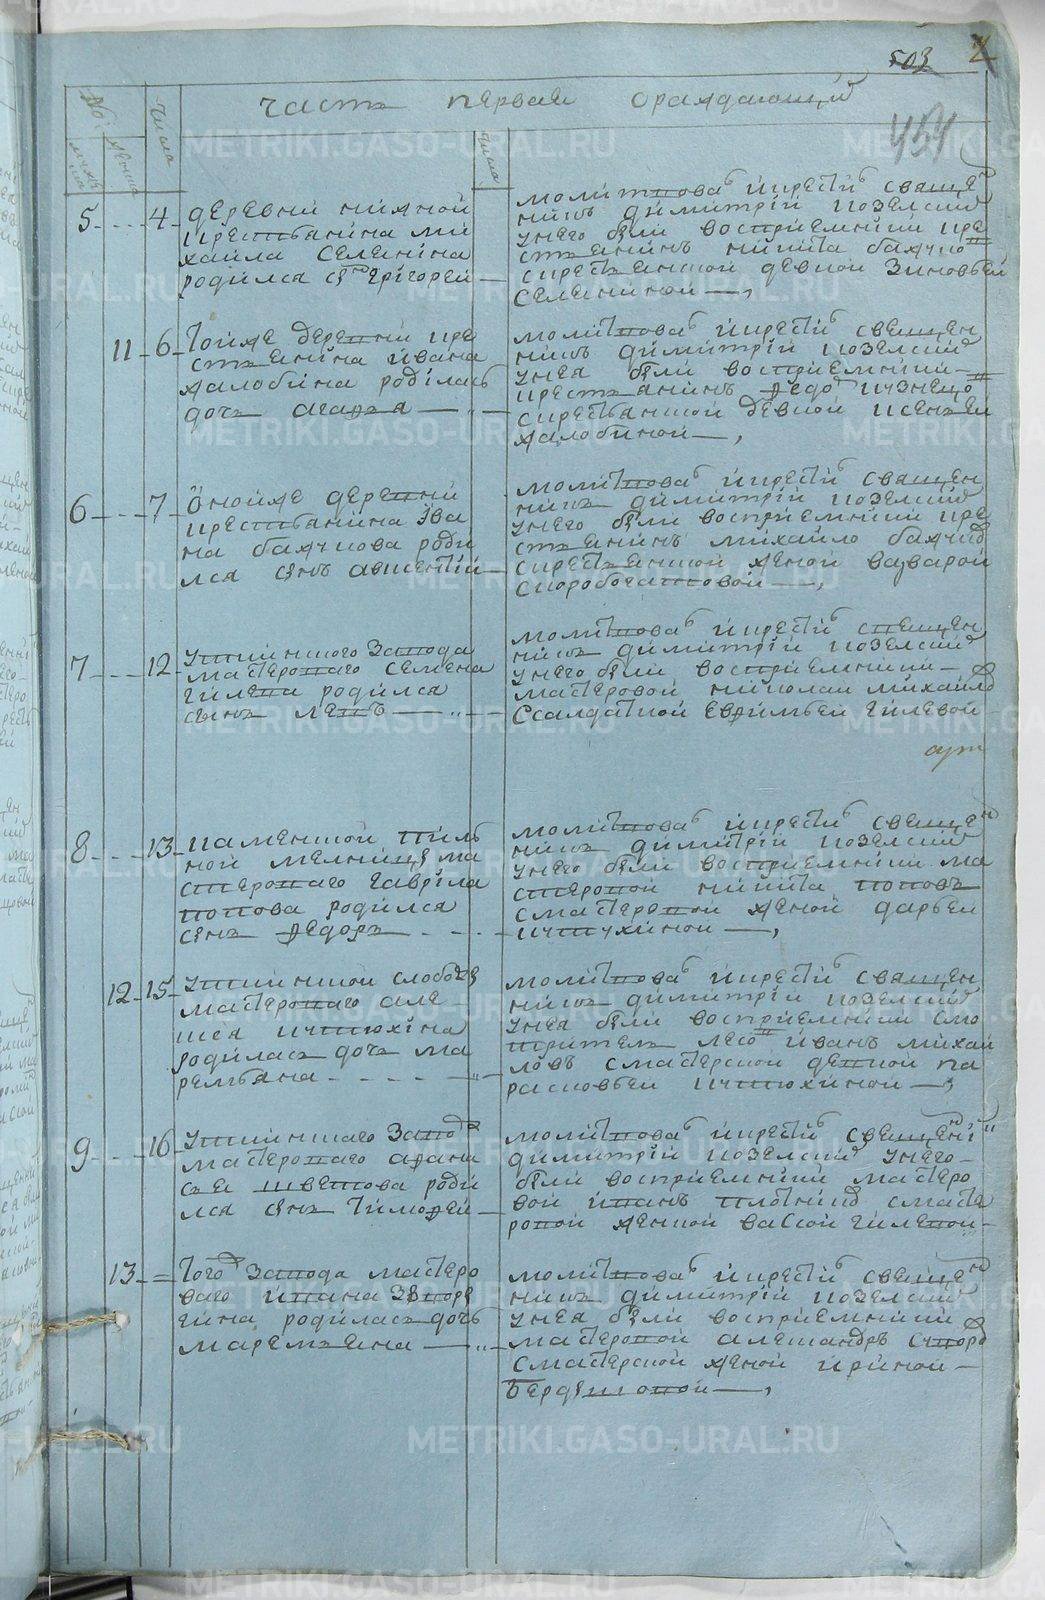 503 2
454
часть первая ораждающий
№ числа
мужеска женска
числа
5 4 деревни нижной
крестьянина ми
хаила Селенина
родился сын Григорей
молитвовал и крестил священ
никъ димитрий козелский
у него были восприемники кре
стьянинъ никита бажуко
с крестьянской девкой Зиновьей
Селениной
11 6 тойже деревни кре
стьянина ивана
халобина родилась
дочь агафья
молитвовал и крестил свещен
никъ димитрий козелский
у нея были восприемники
крестьянинъ федо кузнецо
с крестьянской девкой ксеньей
халобиной
6 7 оной же деревни
крестьянина Ива
на бажукова роди
лся сынъ авксентий
молитвовал и крестил священ
никъ димитрий козелский
у него были восприемники кре
стьянинъ михайло бажуко
с крестьянской женой варварой
скоробогатовой
7 12 уткинского завода
мастероваго Семена
гилева родился
сынъ левъ
молитвовал и крестил свещен
никъ димитрий козелский
у него были восприемники
мастеровой николаи михайло
с салдаткой Евфимьей гилевой
8 13 каменской пиль
ной мелницы ма
стероваго гаврила
попова родился
сынъ федоръ
молитвовал и крестил свещен
никъ димитрий козелский
у него были восприемники ма
стеровой никита поповъ
с мастеровой женой дарьей
12 15 уткинской слободы
мастероваго але
родилась дочь ма
ремьяна
молитвовал и крестил священ
никъ димитрий козелский
у нея были восприемники смо
тритель лесо иванъ михаи
ловъ с мастерской девкой па
расковьей
9 16 уткинскаго завод
мастероваго афана
сьеи шветова роди
лся сынъ тимофей
молитвовал и крестил свещени
димитрий козелский у него
были восприемники мастеро
вой иванъ плотнико с масте
ровой женой васой гилевой
13 = того завода мастеро
ваго ивана
родилась дочь
маремьяна
молитвовал и крестил свещен
никъ димитрий козелский
у нея были восприемники
мастеровой александръ
с мастерской женой ириной
METRIKI.GASO-URAL.RU